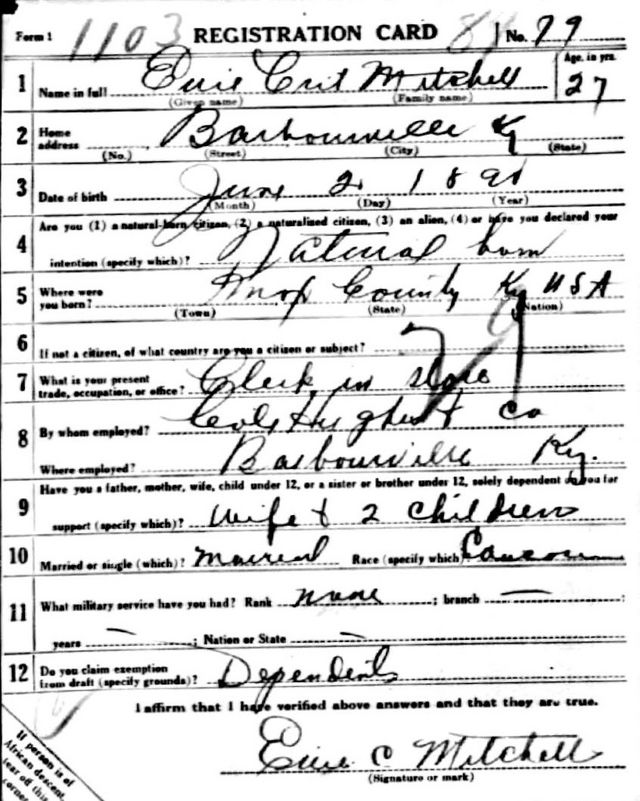 Form 1 1103 REGISTRATION CARD No. 79
1 Name in full Crit Mitchell Age, in yrs. 27
(Given name) (Family name)
2 Home address Barbourville Ky
(No.) (Street) (City) (State)
3 Date of birth June 2 1890
(Month) (Day) (Year)
4 Are you (1) a natural-born citizen, (2) a naturalized citizen, (3) an alien, (4) or have you declared your
intention (specify which)? Natural born
5 Where were you born? Knox County Ky USA
(Town) (State) (Nation)
6 If not a citizen, of what country are you a citizen or subject?
7 What is your present trade, occupation, or office? Clerk in store
8 By whom employed? Cole Hughes & Co
Where employed? Barbourville Ky.
9 Have you a father, mother, wife, child under 12, or a sister or brother under 12, solely dependent on you for
support (specify which)? Wife & 2 children
10 Married or single (which)? Married Race (specify which)
11 What military service have you had? Rank none ; branch —
years — ; Nation or State —
12 Do you claim exemption from draft (specify grounds)? Dependents
I affirm that I have verified above answers and that they are true.
C Mitchell
(Signature or mark)
If person is of
African descent,
tear off this
corner